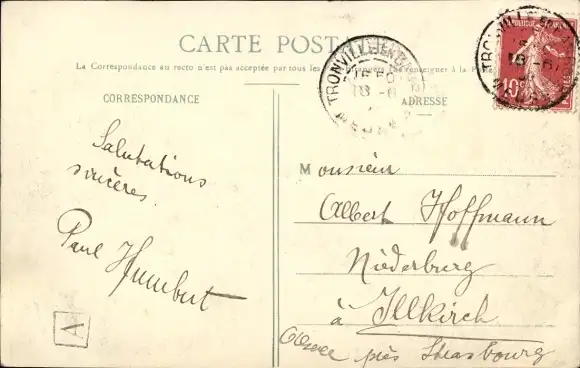 CARTE POSTALE
La Correspondance au recto n'est pas acceptée par tous les
renseigner à la Poste
CORRESPONDANCE
ADRESSE
TRONVILLE-EN-B
18 -6
MEUSE
TRONVILLE-EN
18 -6
10c
Salutations
sincères.
Paul Humbert
A
Monsieur
Albert Hoffmann
Niederburg
à Illkirch
Alsace près Strasbourg